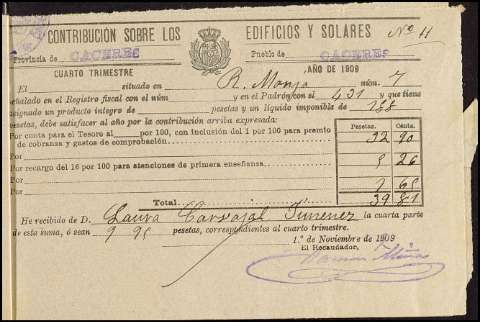 CONTRIBUCIÓN SOBRE LOS EDIFICIOS Y SOLARES
Nº 11
Provincia de CACERES Pueblo de CACERES
CUARTO TRIMESTRE AÑO DE 1909
El situado en R. Monja núm. 7
señalado en el Registro fiscal con el núm. y en el Padrón con el 431 y que tiene
asignado un producto íntegro de pesetas y un líquido imponible de 188
pesetas, debe satisfacer al año por la contribución arriba expresada:
Pesetas. Cénts.
Por cuota para el Tesoro al por 100, con inclusión del 1 por 100 para premio
de cobranza y gastos de comprobación. 32 90
Por
Por recargo del 16 por 100 para atenciones de primera enseñanza. 5 26
Por
Por 1 65
Total. 39 81
He recibido de D. Laura Carvajal Jimenez la cuarta parte
de esta suma, ó sean 9 95 pesetas, correspondientes al cuarto trimestre.
1.º de Noviembre de 1909
El Recaudador,